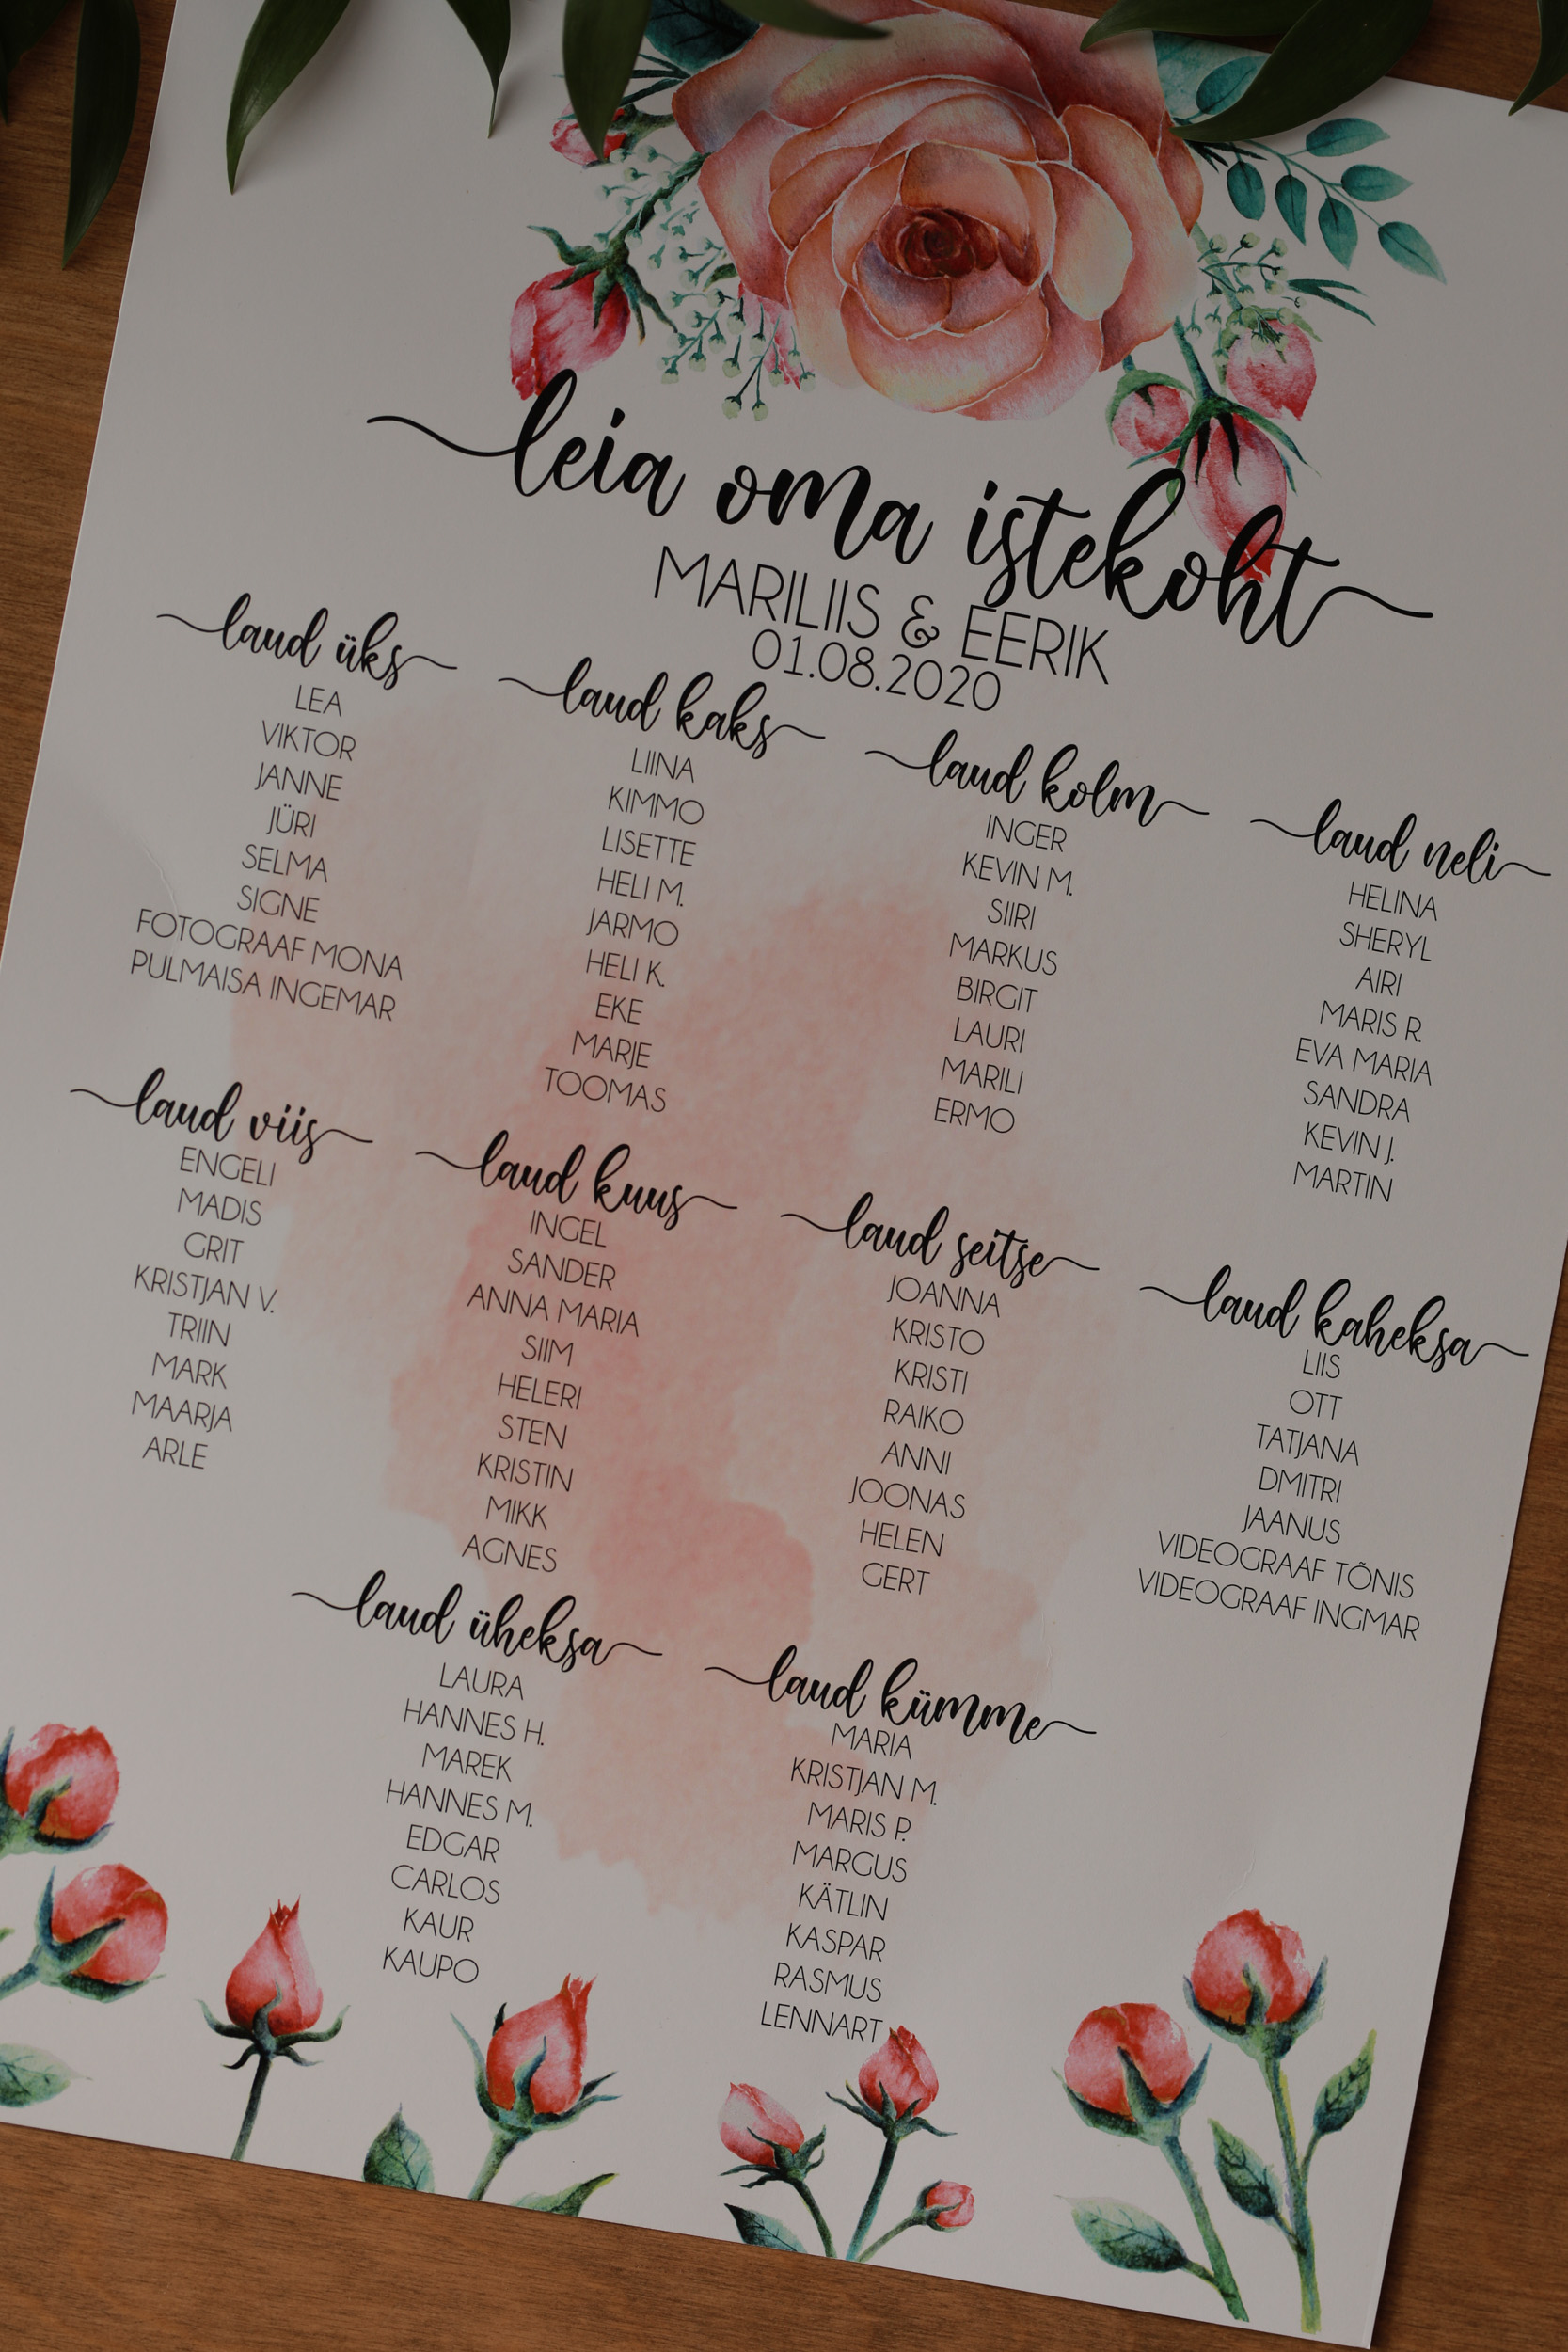 leia oma istekoht
MARILIIS & EERIK
01.08.2020
laud üks
LEA
VIKTOR
JANNE
JÜRI
SELMA
SIGNE
FOTOGRAAF MONA
PULMAISA INGEMAR
laud kaks
LIINA
KIMMO
LISETTE
HELI M.
JARMO
HELI K.
EKE
MARJE
TOOMAS
laud kolm
INGER
KEVIN M.
SIIRI
MARKUS
BIRGIT
LAURI
MARILI
ERMO
laud neli
HELINA
SHERYL
AIRI
MARIS R.
EVA MARIA
SANDRA
KEVIN J.
MARTIN
laud viis
ENGELI
MADIS
GRIT
KRISTJAN V.
TRIIN
MARK
MAARJA
ARLE
laud kuus
INGEL
SANDER
ANNA MARIA
SIIM
HELERI
STEN
KRISTIN
MIKK
AGNES
laud seitse
JOANNA
KRISTO
KRISTI
RAIKO
ANNI
JOONAS
HELEN
GERT
laud kaheksa
LIIS
OTT
TATJANA
DMITRI
JAANUS
VIDEOGRAAF TÕNIS
VIDEOGRAAF INGMAR
laud üheksa
LAURA
HANNES H.
MAREK
HANNES M.
EDGAR
CARLOS
KAUR
KAUPO
laud kümme
MARIA
KRISTJAN M.
MARIS P.
MARGUS
KÄTLIN
KASPAR
RASMUS
LENNART